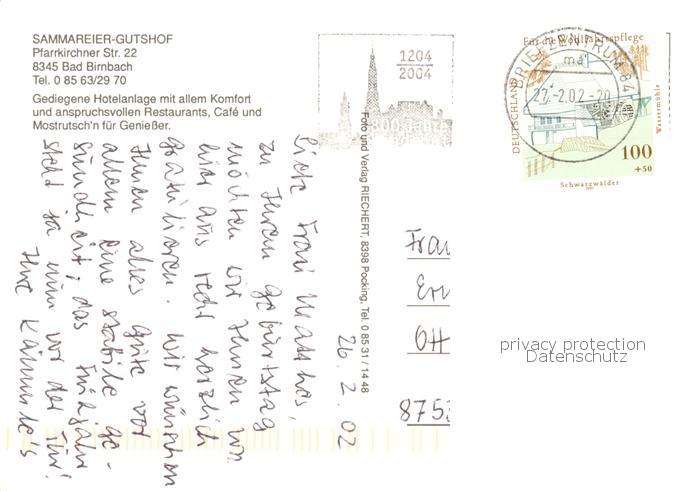 SAMMAREIER-GUTSHOF
Pfarrkirchner Str. 22
8345 Bad Birnbach
Tel. 0 85 63/29 70
Gediegene Hotelanlage mit allem Komfort
und anspruchsvollen Restaurants, Café und
Mostrutsch'n für Genießer.
1204
2004
Für die Wohlfahrtspflege
DEUTSCHLAND
Wassermühle
100
+50
Schwarzwälder
1997
BRIEFZENTRUM 84
ma
27.-2.02-20
Foto und Verlag RIECHERT, 8398 Pocking, Tel. 0 85 31/14 48
26. 2. 02
Liebe Frau Matthes,
zu Ihrem Geburtstag
möchten wir Ihnen von
hier aus recht herzlich
gratulieren. Wir wünschen
Ihnen alles Gute vor
allem eine stabile Ge-
sundheit; das Frühjahr
steht ja nun vor der Tür!
Ihre
Frau
875
privacy protection
Datenschutz